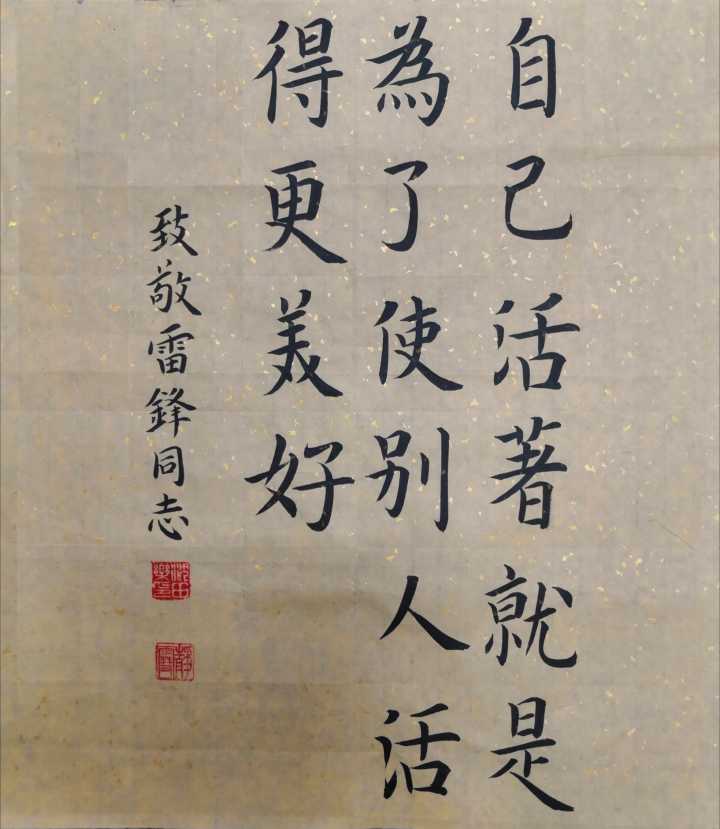 自己活著就是
為了使别人活
得更美好
致敬雷鋒同志